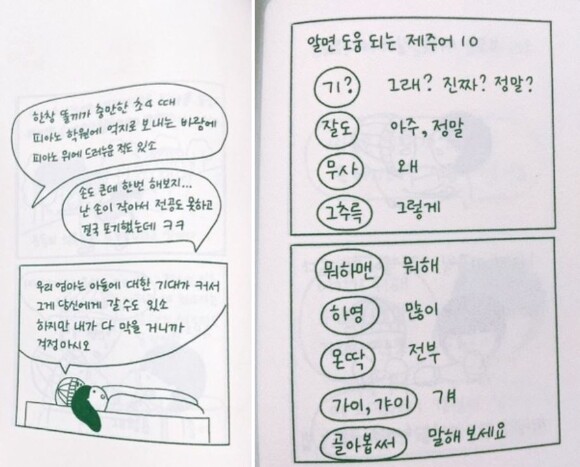 한창 똘기가 충만한 초4 때
피아노 학원에 억지로 보내는 바람에
피아노 위에 드러누운 적도 있소
손도 큰데 한번 해보지...
난 손이 작아서 전공도 못하고
결국 포기했는데 ㅋㅋ
우리 엄마는 아들에 대한 기대가 커서
그게 당신에게 갈 수도 있소
하지만 내가 다 막을 거니까
걱정 마시오
알면 도움 되는 제주어 10
기? 그래? 진짜? 정말?
잘도 아주, 정말
무사 왜
그추륵 그렇게
뭐하맨 뭐해
하영 많이
온딱 전부
가이, 갸이 걔
골아봅써 말해 보세요